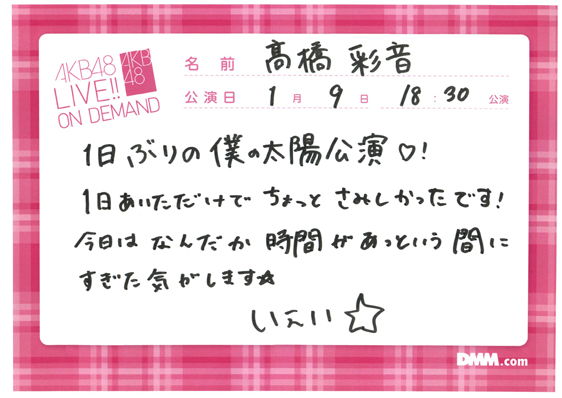 AKB48
LIVE!!
ON DEMAND
AKB
48
名前 髙橋 彩音
公演日 1月 9日 18:30 公演
1日ぶりの僕の太陽公演♡!
1日あいただけで ちょっと さみしかったです!
今日は なんだか 時間が あっという間に
すぎた気がします☆
いえい☆
DMM.com